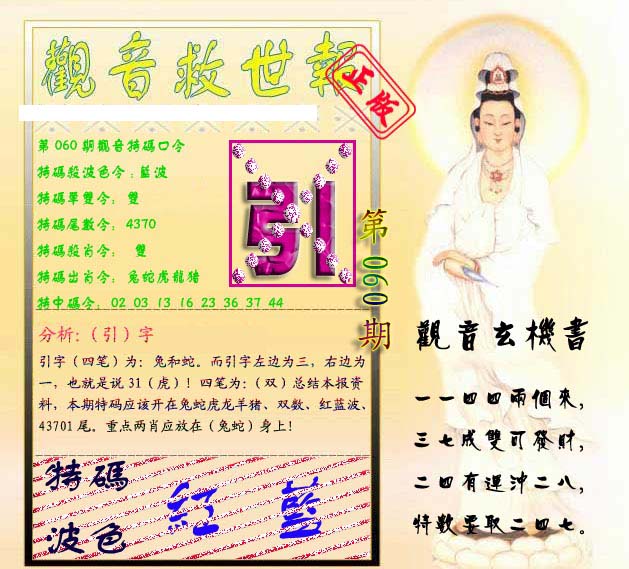 觀音救世報
正版
第060期觀音特碼口令
特碼殺波色令:藍波
特碼單雙令: 雙
特碼尾數令: 4370
特碼殺肖令: 雙
特碼出肖令: 兔蛇虎龍猪
特中碼令: 02 03 13 16 23 36 37 44
引
第060期
分析:（引）字
引字（四笔）为: 兔和蛇。而引字左边为三，右边为
一，也就是说31（虎）! 四笔为:（双）总结本报资
料，本期特码应该开在兔蛇虎龙羊猪、双数、红蓝波、
43701尾。重点两肖应放在（兔蛇）身上!
特碼
波色
紅 藍
觀音玄機書
一一四四兩個來,
三七成雙可發財,
二四有運沖二八,
特數要取二四七。